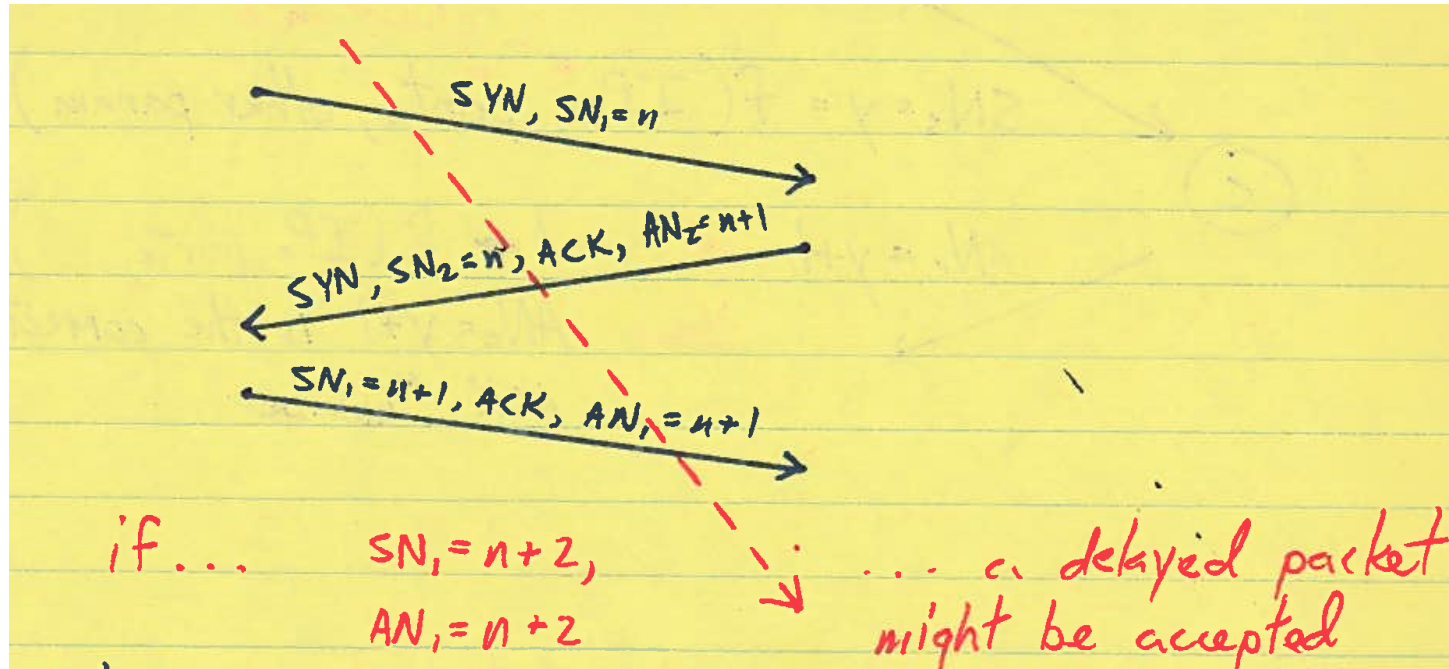 SYN, SN₁=n
SYN, SN₂=n, ACK, AN₂=n+1
SN₁=n+1, ACK, AN₁=n+1
if... SN₁=n+2, ... a delayed packet
AN₁=n+2 might be accepted